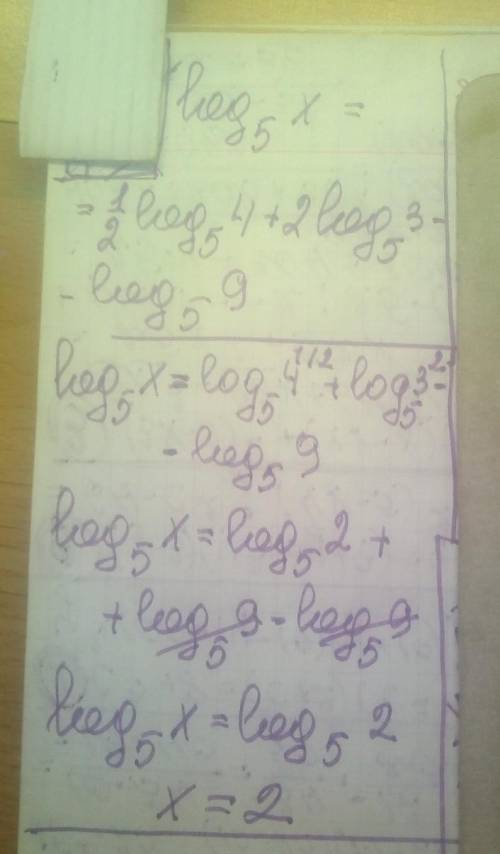 log₅ x =
= 1/2 log₅ 4 + 2 log₅ 3 -
- log₅ 9
log₅ x = log₅ 4^1/2 + log₅ 3² -
- log₅ 9
log₅ x = log₅ 2 +
+ log₅ 9 - log₅ 9
log₅ x = log₅ 2
x = 2